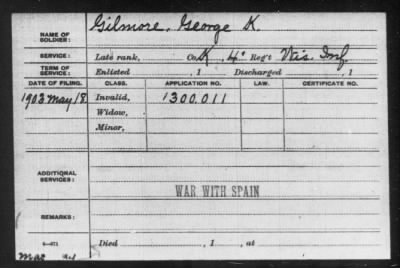 NAME OF SOLDIER: Gilmore, George K.
SERVICE: Late rank, Co. K, 4" Reg't Wis. Inf.
TERM OF SERVICE: Enlisted , 1 Discharged , 1
DATE OF FILING. CLASS. APPLICATION NO. LAW. CERTIFICATE NO.
1903 May 18 Invalid, 1300.011
Widow,
Minor,
ADDITIONAL SERVICES:
WAR WITH SPAIN
REMARKS:
Died , 1 , at